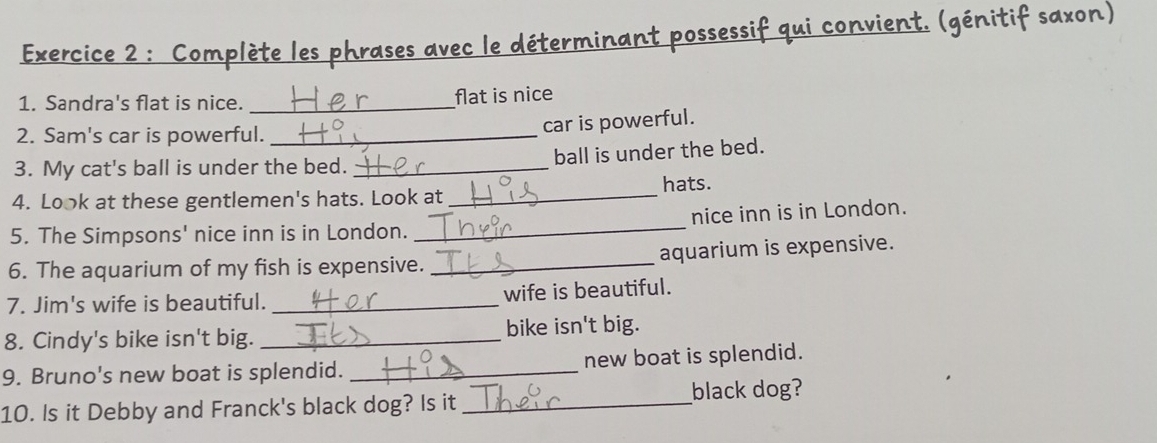 Exercice 2 : Complète les phrases avec le déterminant possessif qui convient. (génitif saxon)
1. Sandra's flat is nice. Her flat is nice
2. Sam's car is powerful. His car is powerful.
3. My cat's ball is under the bed. Her ball is under the bed.
4. Look at these gentlemen's hats. Look at His hats.
5. The Simpsons' nice inn is in London. Their nice inn is in London.
6. The aquarium of my fish is expensive. Its aquarium is expensive.
7. Jim's wife is beautiful. Her wife is beautiful.
8. Cindy's bike isn't big. Its bike isn't big.
9. Bruno's new boat is splendid. His new boat is splendid.
10. Is it Debby and Franck's black dog? Is it Their black dog?